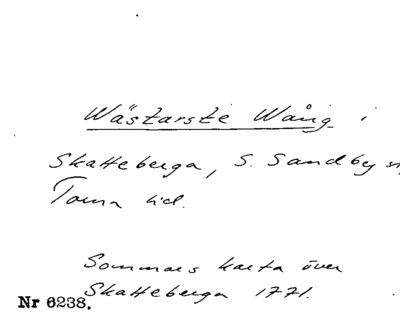 Wästarste Wång i
Skatteberga, S. Sandby sn,
Torna hd.
Sommars karta över
Skatteberga 1771.
Nr 6238.